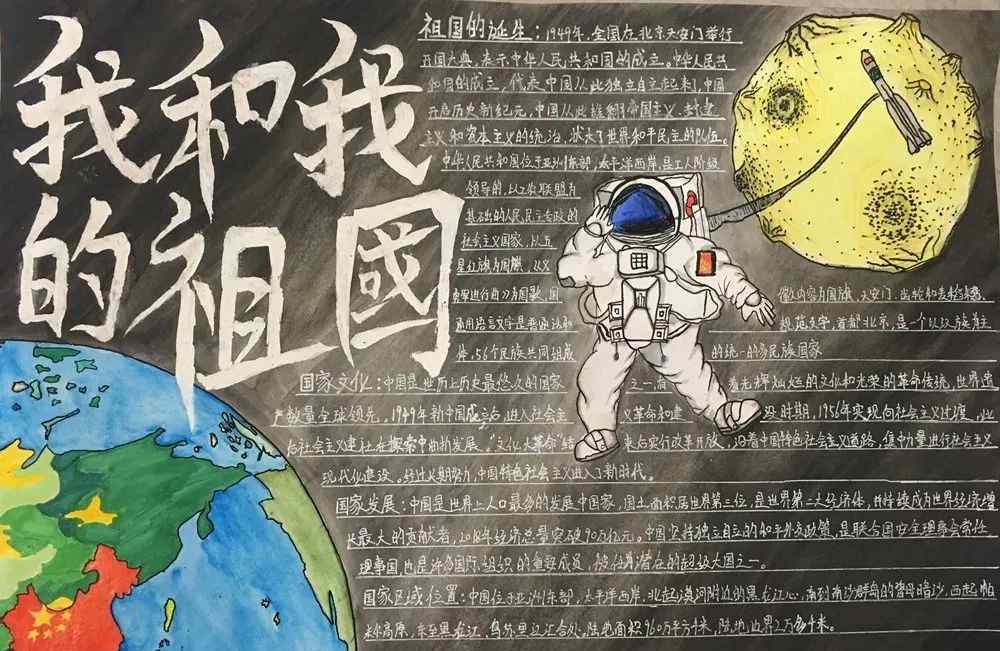 我和我
的祖國
祖国的诞生：1949年，全国在北京天安门举行
开国大典，表示中华人民共和国的成立。中华人民共
和国的成立，代表中国从此独立自主起来，中国
开启历史新纪元，中国从此推翻了帝国主义、封建
主义和资本主义的统治，壮大了世界和平民主的队伍。
中华人民共和国位于亚洲东部，太平洋西岸，是工人阶级
领导的，以工农联盟为
基础的人民民主专政的
社会主义国家，以五
星红旗为国旗，以义
勇军进行曲为国歌，国
徽内容为国旗、天安门、齿轮和麦稻穗，
通用语言文字是普通话和
规范汉字，首都北京，是一个以汉族为主
体，56个民族共同组成
的统一的多民族国家
国家文化：中国是世界上历史最悠久的国家
之一，有着光辉灿烂的文化和光荣的革命传统，世界遗
产数量全球领先，1949年新中国成立后，进入社会主
义革命和建设时期，1956年实现向社会主义过渡，此
后社会主义建设在探索中曲折发展。“文化大革命”结
束后实行改革开放，沿着中国特色社会主义道路，集中力量进行社会主义
现代化建设。经过长期努力，中国特色社会主义进入了新时代。
国家发展：中国是世界上人口最多的发展中国家，国土面积居世界第三位，是世界第二大经济体，并持续成为世界经济增
长最大的贡献者，2018年经济总量突破90万亿元。中国坚持独立自主的和平外交政策，是联合国安全理事会常任
理事国，也是许多国际组织的重要成员，被认为是潜在的超级大国之一。
国家区域位置：中国位于亚洲东部，太平洋西岸，北起漠河附近的黑龙江心，南到南沙群岛的曾母暗沙，西起帕
米尔高原，东至黑龙江、乌苏里江汇合处。陆地面积960万平方千米，陆地边界2万多千米。